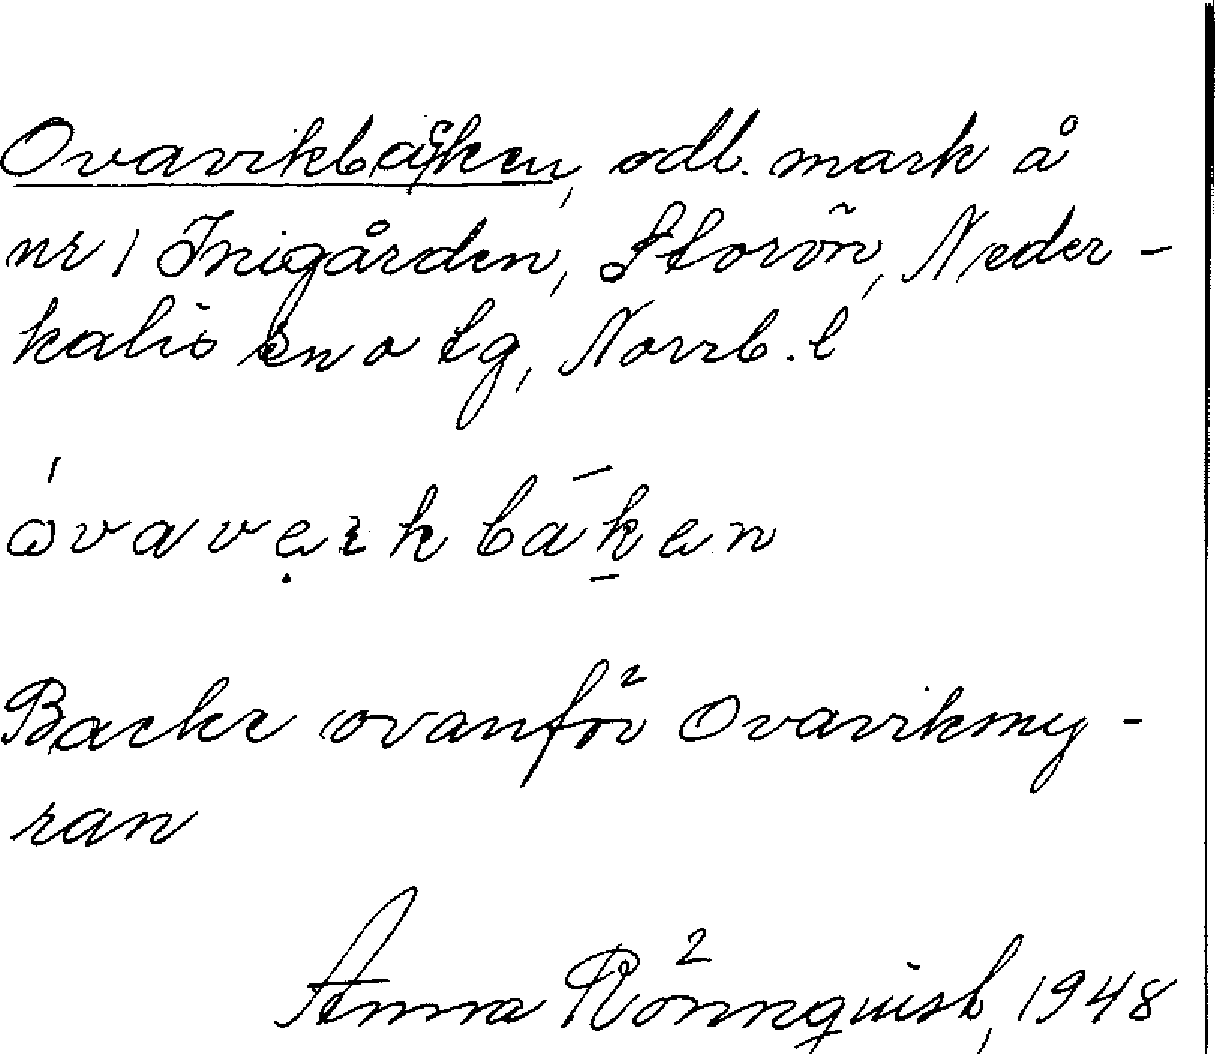 Ovavikbacken, odl. mark å
nr 1 Inigården, Storön, Neder-
kalix sn o tg, Norrb. l
Backe ovanför Ovavikmy-
ran
Anna Rönnquist, 1948